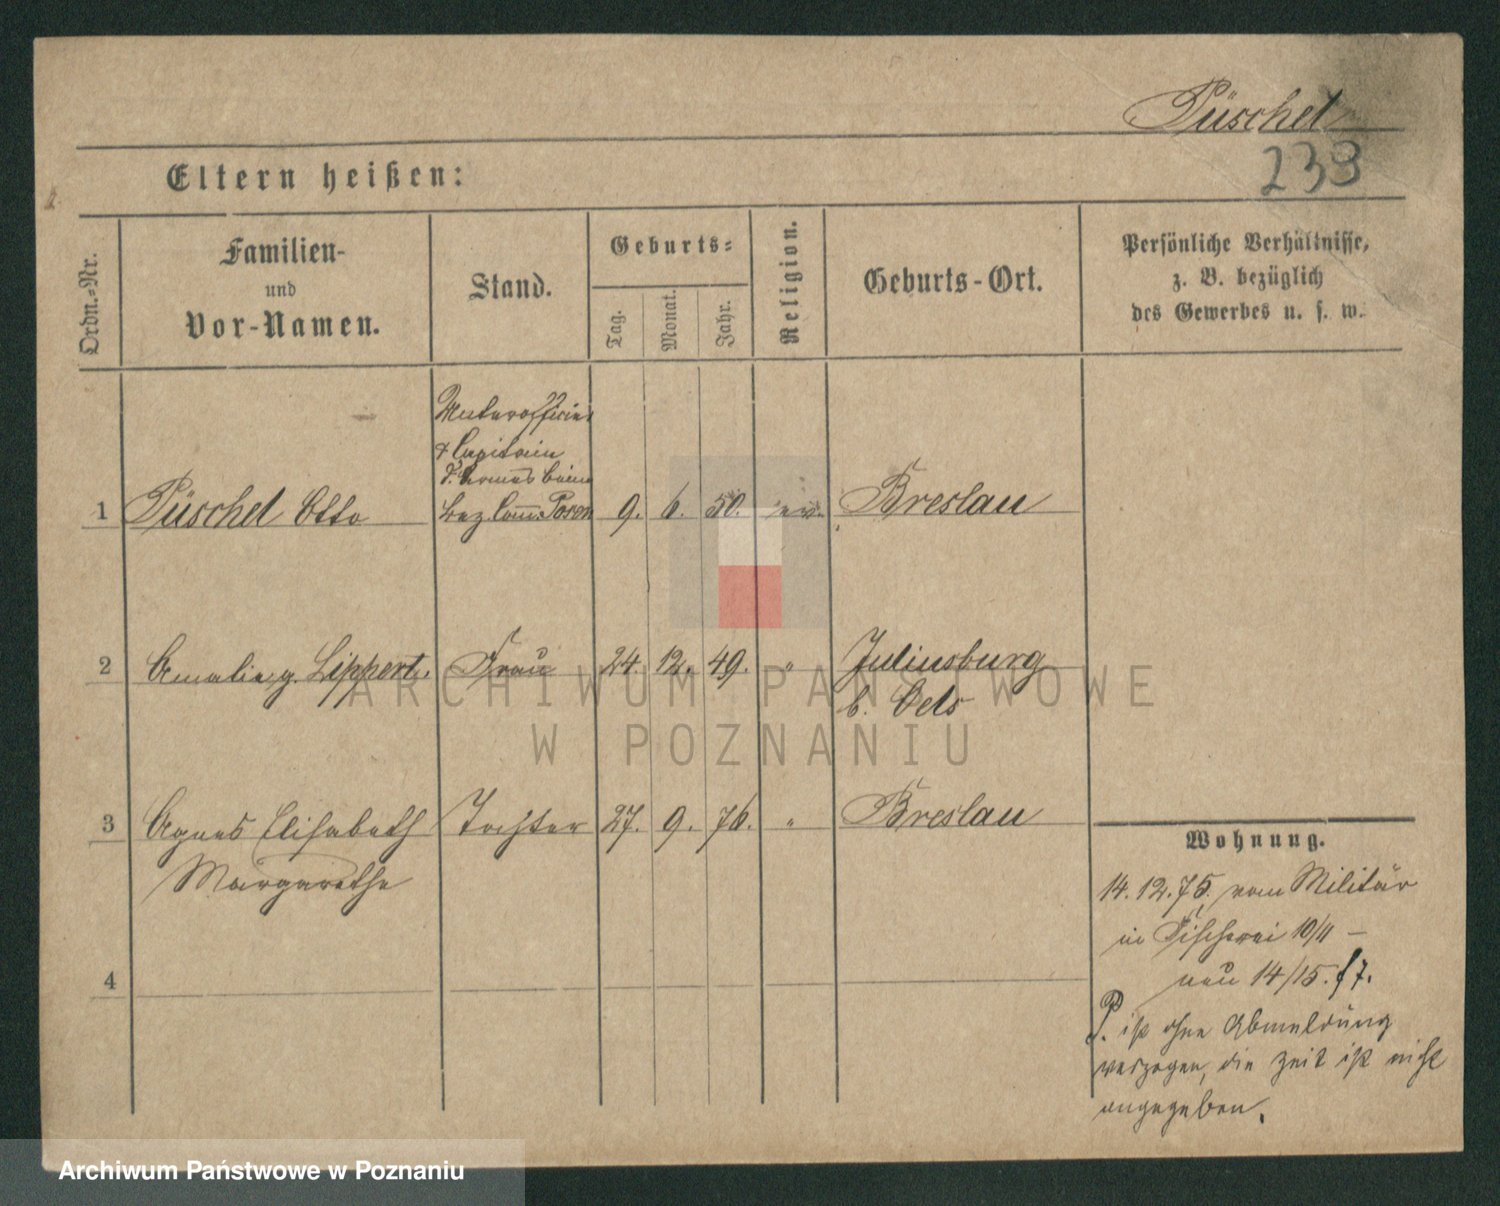 Püschel
233
Eltern heißen:
Ordn.-Nr.
Familien-
und
Vor-Namen.
Stand.
Geburts-
Tag.
Monat.
Jahr.
Religion.
Geburts-Ort.
Persönliche Verhältnisse,
z. B. bezüglich
des Gewerbes u. s. w.
Unterofficier
& Capitain
d'armes beim
1 Püschel Otto Bez. Com. Posen 9. 6. 50. ev. Breslau
2 Amalie g. Lippert. Frau 24. 12. 49. " Juliusburg
b. Oels
3 Agnes Elisabeth Tochter 27. 9. 76. " Breslau
Margarethe
4
Wohnung.
14.12.75. vom Militär
in Fischerei 10/11 –
neu 14/15.
P. ist ohne Abmeldung
verzogen, die Zeit ist nicht
angegeben.
ARCHIWUM PAŃSTWOWE
W POZNANIU
Archiwum Państwowe w Poznaniu